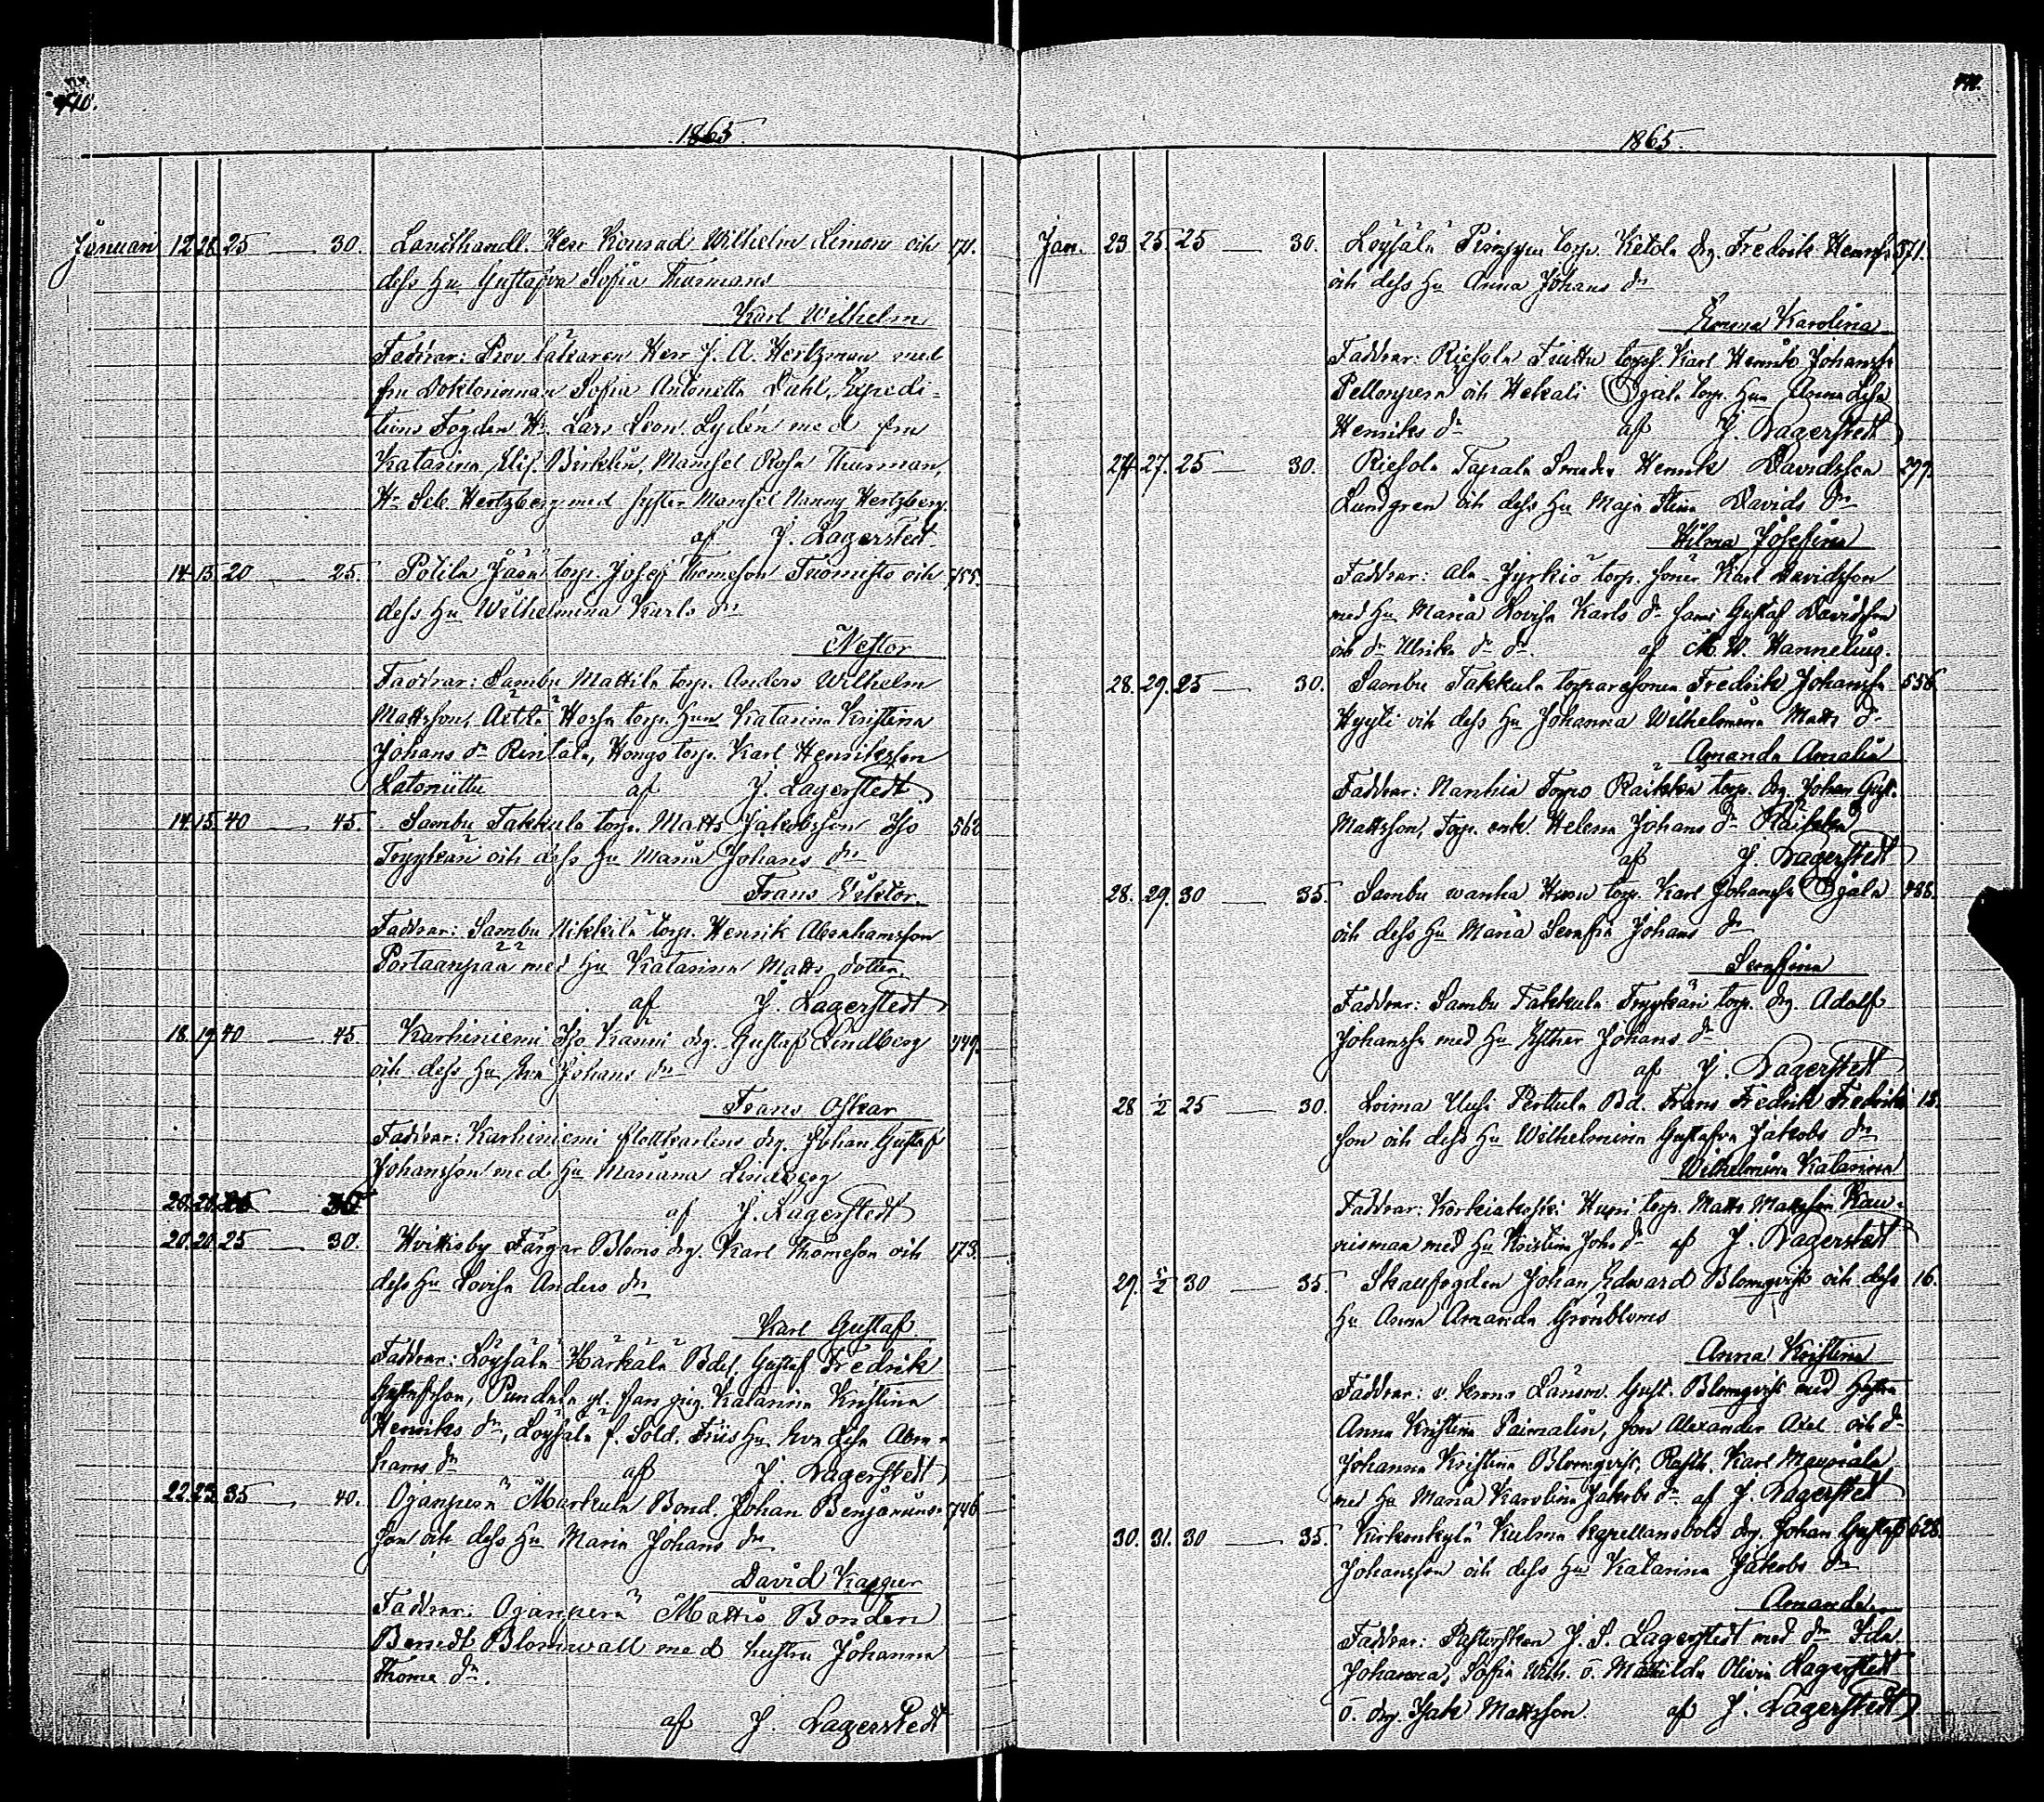 1865.
Januari 12 21. 25 — 30. Landthandl. Herr Konrad Wilhelm Limon och 171.
dess Hu Gustafva Sofia Thurmans
Karl Wilhelm
Faddrar: Prov. läkaren Herr J. A. Hertzman med
fru Doktorinnan Sofia Antonetta Dahl, Expedi-
tions Fogden Hr. Lars Leon Lydén med fru
Katarina Elis. Birklin, Mamsel Rosa Thurman,
Hr Seb. Hertzberg med syster Mamsel Nanny Hertzberg.
af J. Lagerstedt
14 15 20 — 25. Potila Jään torp. Josef Thomeson Tuomisto och 755.
dess Hu Wilhelmina Karls dr
Nestor
Faddrar: Sambu Mattila torp. Anders Wilhelm
Mattsson, Hossa torp. Hun Katarina Kristina
Johans dr Rintala, Hongo torp. Karl Henriksson
Latoniittu af J. Lagerstedt
14 15. 40 — 45. Sambu Takkula torp. Matts Jakobsson Iso 562
Tryykäri och dess Hu Maria Johans dr
Frans Viktor.
Faddrar: Sambu Nikkilä torp. Henrik Abrahamsson
Portaanpää med Hu Katarina Matts dotter.
af J. Lagerstedt
18. 19. 40 — 45 Karhiniemi Iso Kanni drg. Gustaf Lindberg 449.
och dess Hu Eva Johans dr
Frans Oskar
Faddrar: Karhiniemi drg. Johan Gustaf
Johansson med Hu Mariana Lindberg
af J. Lagerstedt
20. 20. 25 — 30. Hvittisby Färgar Bloms drg. Karl Thomeson och 173.
dess Hu Lovisa Anders dr
Karl Gustaf
Faddrar: Loysälä Härkälä Bdes. Gustaf Fredrik
Gustafsson, Katarina Kristina
Henriks dr, Loysälä f. Sold. Friis Hu Eva Lisa Abra-
hams dr af J. Lagerstedt
22. 23. 35 — 40. Ojanperä Markula Bond. Johan Benjamins- 746
son och dess Hu Maria Johans dr
David Kasper
Faddrar: Ojanperä Mattis Bonden
Benedt Blomwall med hustru Johanna
Thome dr.
af J. Lagerstedt
1865.
Jan. 23 25. 25 — 30. Loysälä torp. Ketola drg. Fredrik Henrs. 571.
och dess Hu Anna Johans dr
Emma Karolina
Faddrar: Riesola torps. Karl Henrik Johanss.
Pellonperä och Hekali Ojala torp. Hun Anna Lisa
Henriks dr af J. Lagerstedt
27. 27. 25 — 30. Riesola Tapala Smeden Henrik Davidsson 299.
Lundgren och dess Hu Maja Stina Davids dr
Hilma Josefina
Faddrar: Ala-Jyrkiö torp. soner Karl Davidsson
med Hu Maria Lovisa Karls dr Gustaf Davidsson
och dr Ulrika dr dr. af M W. Hannelius.
28. 29. 25 — 30. Sambu Takkula torparesonen Fredrik Johanss. 556.
Hyyti och dess Hu Johanna Wilhelmina Matts dr
Amanda Amalia
Faddrar: Nanhia Torpo Räikkä torp. drg. Johan Gust.
Mattsson, torp. enk. Helena Johans dr
af J. Lagerstedt
28. 29. 30 — 35. Sambu wanha torp. Karl Johanss. Ojala 488.
och dess Hu Maria Serafia Johans dr
Serafina
Faddrar: Sambu Takkula Tryykäri torp. drg. Adolf
Johanss. med Hu Esther Johans dr
af J. Lagerstedt
28 1/2 25 — 30. Loima Uusi Perttula Bd. Frans Fredrik Fredriks- 13.
son och dess Hu Wilhelmina Gustafva Jakobs dr
Wilhelmina Katarina
Faddrar: Korkiakoski Hupi torp. Matts Mattsson Kau-
nisman med Hu Kristina Johs dr af J. Lagerstedt
29. 5/2 30 — 35. Skallfogden Johan Edward Blomqvist och dess 16.
Hu Anna Amanda Grönbloms
Anna Kristina
Faddrar: v. krono Länsm. Gust. Blomqvist med Hustru
Anna Kristina Paimalin, son Alexander Axel och dr
Johanna Kristina Blomqvist, Karl
med Hu Maria Karolina Jakobs dr af J. Lagerstedt
30. 31. 30 — 35. Kirkonkylä Kulma kapellansbols drg. Johan Gustaf 628.
Johansson och dess Hu Katarina Jakobs dr
Amanda
Faddrar: Pastorskan J. S. Lagerstedt med dr Ida
Johanna, Sofia Wilh. o. Matilda Olivia Lagerstedt
o. drg. Isak Mattsson. af J. Lagerstedt